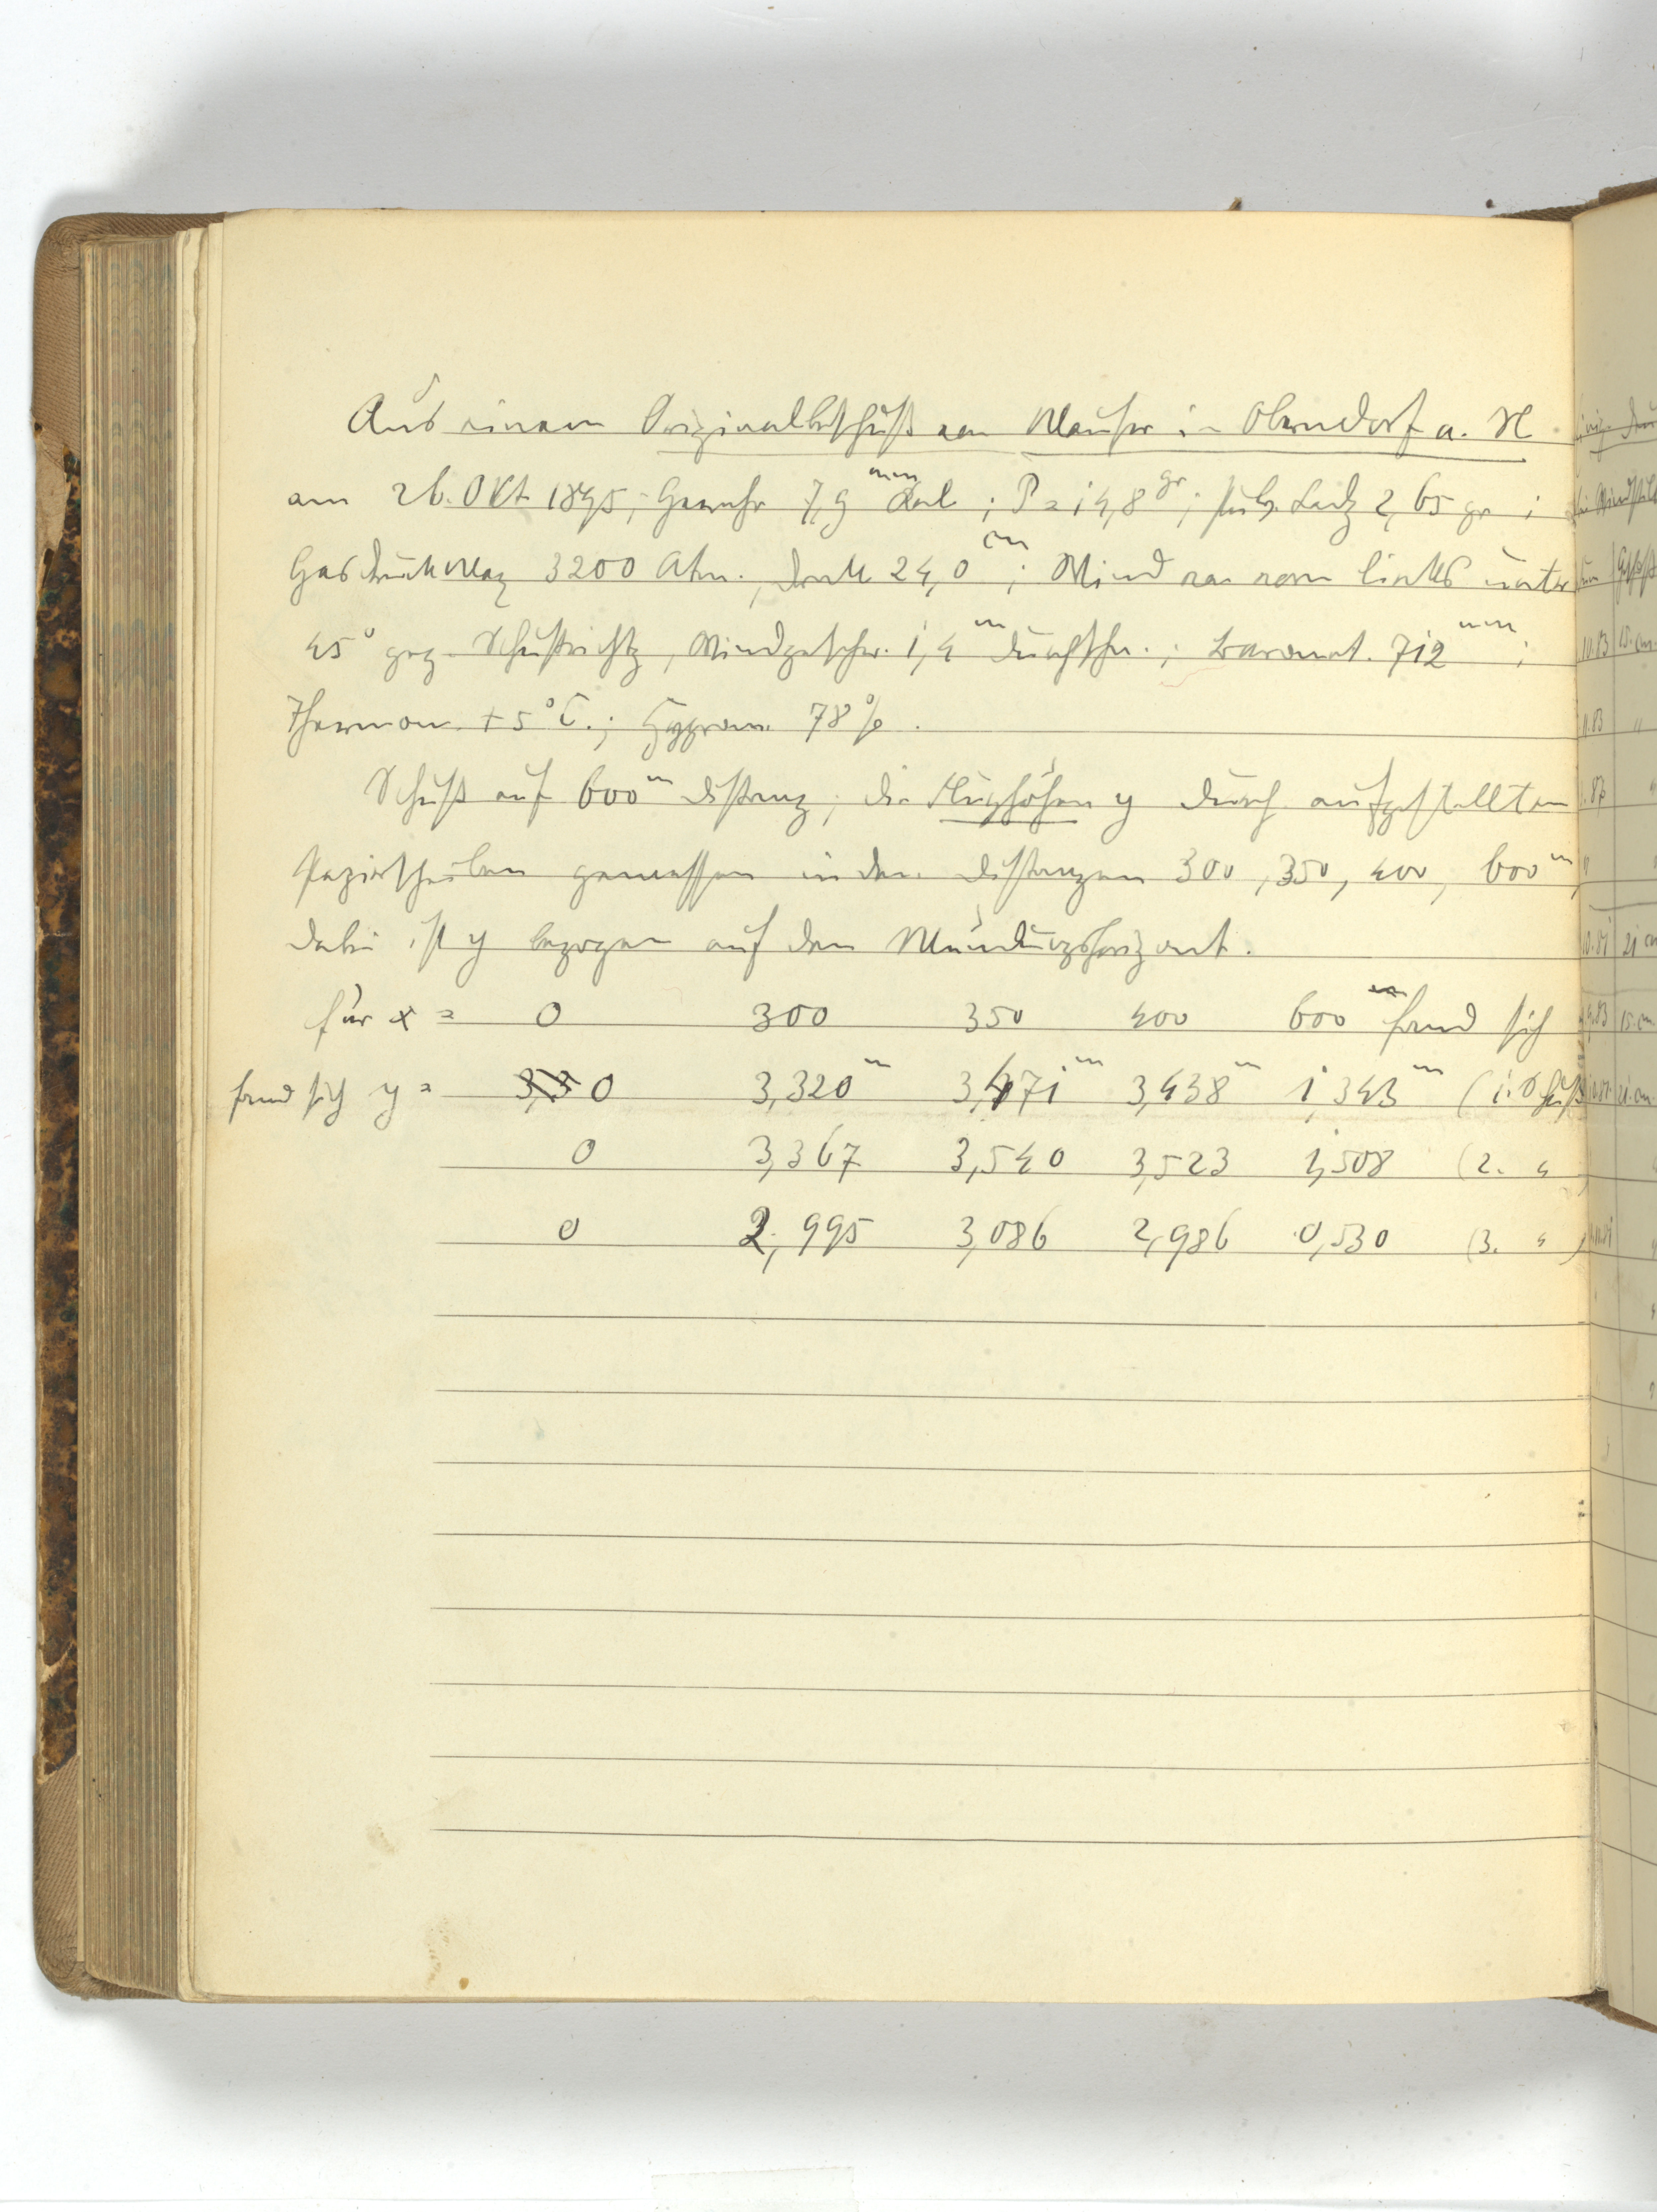 Aus einem Originalbeschuß von Mauser in Oberndorf a. N
am 26. Okt 1895; Gewehr 7,9 mm Kal ; P = 14,8 gr ; Pulv. Ladg 2,65 gr ;
Gasdruck Max 3200 Atm. , Drall 24,0 cm ; Wind von vorn links unter
45° geg. Schußrichtg , Windgeschw. 1,4 m durchschn. ; Baromet. 712 mm ;
Thermom. + 5° C. ; Hygrom. 78 % .
Schuß auf 600 m Distanz ; die Flughöhen y durch aufgestellten
Papierscheiben gemessen in den Distanzen 300 , 350 , 400 , 600 m ,
dabei ist y bezogen auf den Mündungshorizont .
für x = 0 300 350 400 600 fand sich
fand sich y = 0 3,320 m 3,471 m 3,438 m 1,343 m ( 1. Schuß
0 3,367 3,540 3,523 1,508 ( 2. "
0 2,995 3,086 2,986 0,530 ( 3. " )